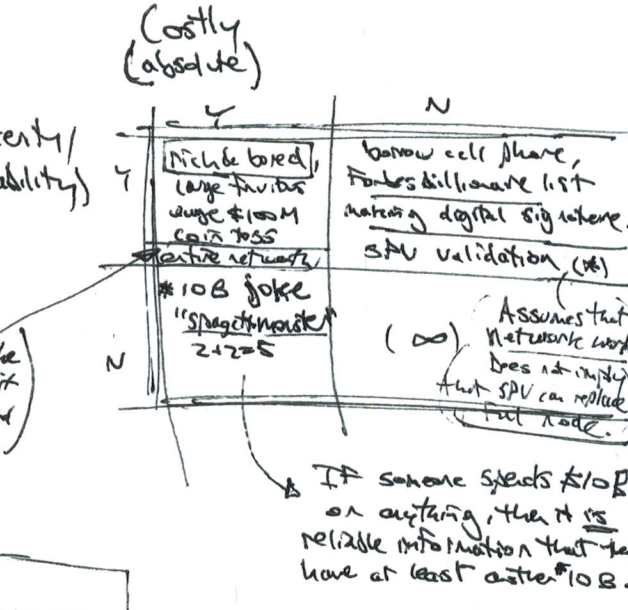 Costly
(absolute)
Y N
Y
Rich & bored,
large
wage $100M
coin toss
entire network
borrow cell phone,
Forbes billionaire list
matching digital signature.
SPV validation (*)
N
$10B joke
"spaghetti monster"
2+2=5
(∞)
Assumes that
Network
Does not imply
that SPV can replace
full node.
If someone spends $10B
on anything, then it is
reliable information that
have at least another $10B.